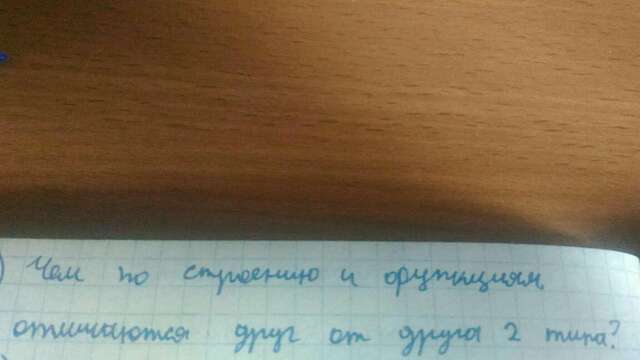 ) Чем по строению и функциям
отличаются друг от друга 2 типа?